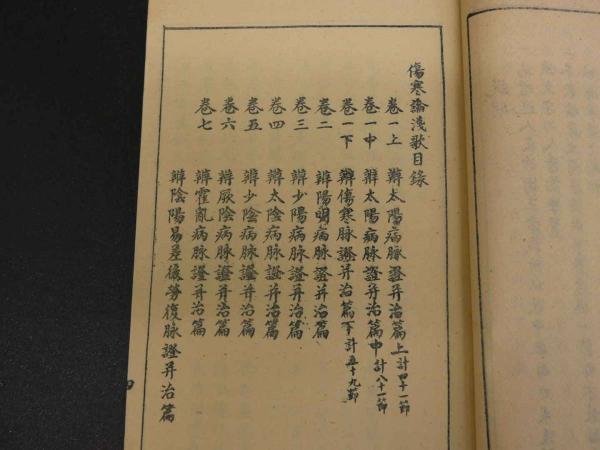 傷寒論淺歌目錄
卷一上 辨太陽病脉證并治篇上計四十一節
卷一中 辨太陽病脉證并治篇中計八十一節
卷一下 辨傷寒脉證并治篇下計五十九節
卷二 辨陽明病脉證并治篇
卷三 辨少陽病脉證并治篇
卷四 辨太陰病脉證并治篇
卷五 辨少陰病脉證并治篇
卷六 辨厥陰病脉證并治篇
卷七 辨霍亂病脉證并治篇
辨陰陽易差後勞復脉證并治篇